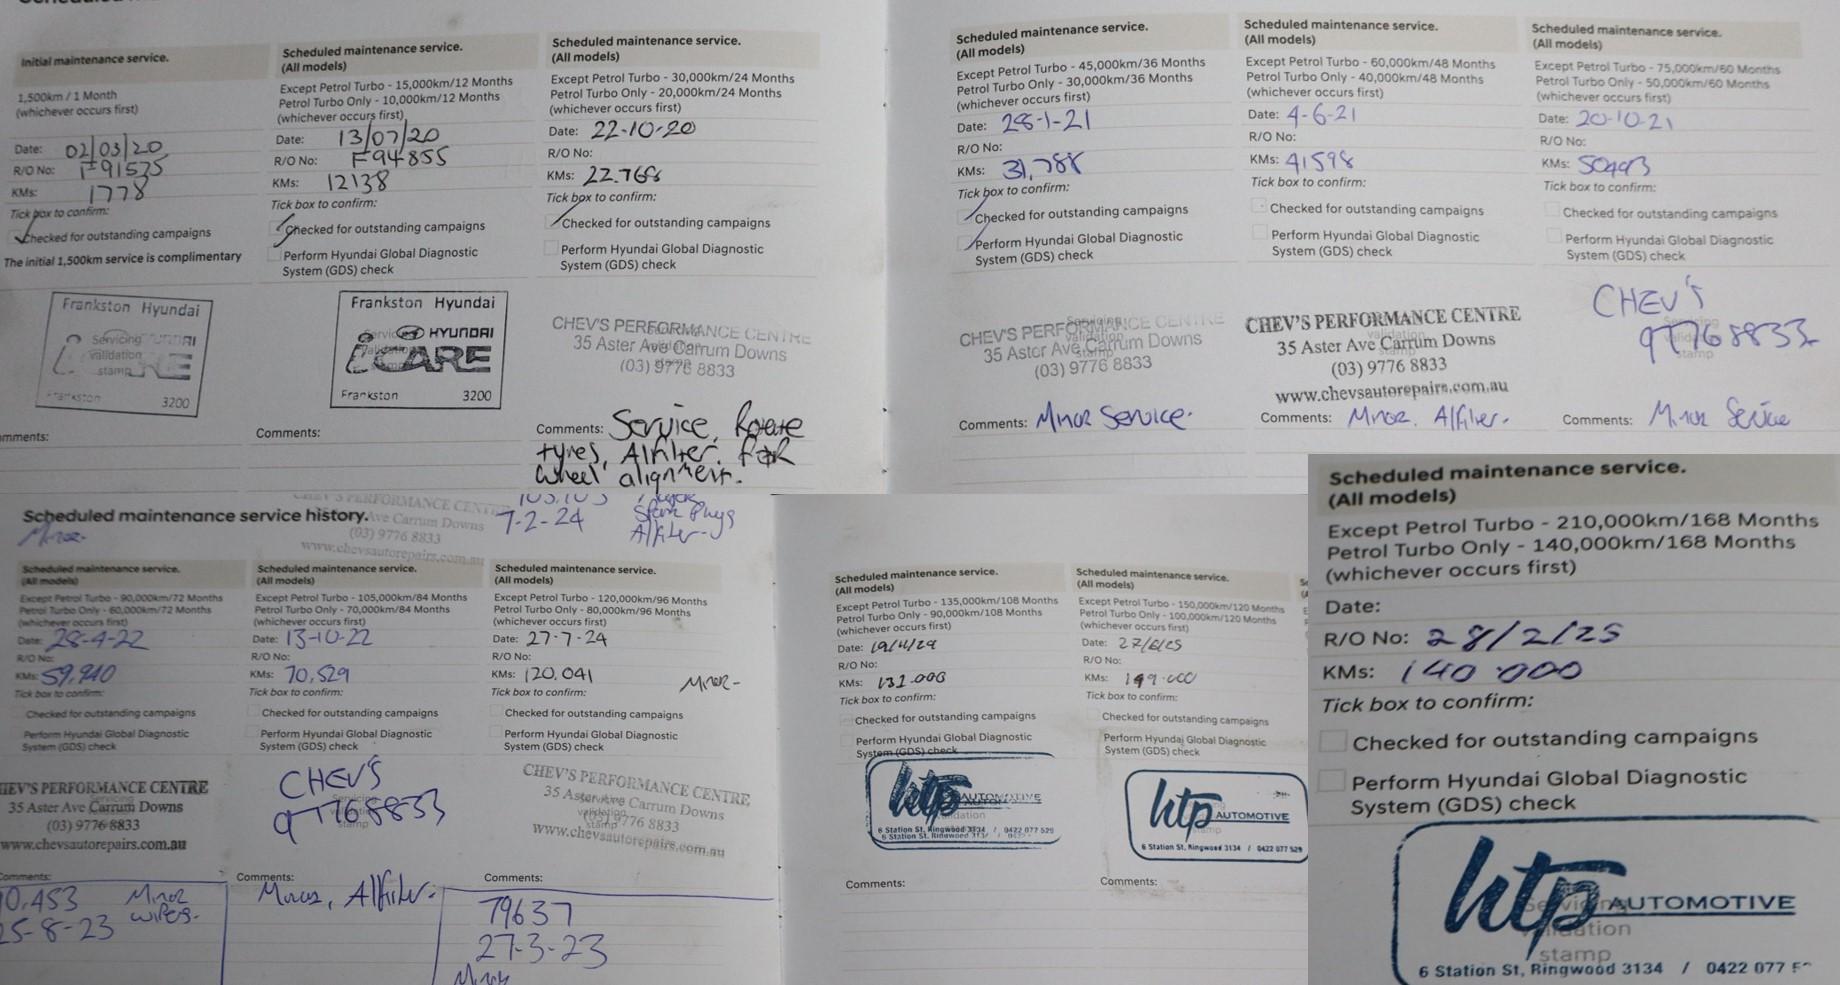 Initial maintenance service.
1,500km / 1 Month
(whichever occurs first)
Date: 02/03/20
R/O No: F91535
KMs: 1778
Tick box to confirm:
Checked for outstanding campaigns
The initial 1,500km service is complimentary
Frankston Hyundai
Servicing
validation
stamp
Frankston 3200
Comments:
Scheduled maintenance service.
(All models)
Except Petrol Turbo - 15,000km/12 Months
Petrol Turbo Only - 10,000km/12 Months
(whichever occurs first)
Date: 13/07/20
R/O No: F94855
KMs: 12138
Tick box to confirm:
Checked for outstanding campaigns
Perform Hyundai Global Diagnostic
System (GDS) check
Frankston Hyundai
HYUNDAI
iCARE
Frankston 3200
Comments:
Scheduled maintenance service.
(All models)
Except Petrol Turbo - 30,000km/24 Months
Petrol Turbo Only - 20,000km/24 Months
(whichever occurs first)
Date: 22-10-20
R/O No:
KMs: 22.768
Tick box to confirm:
Checked for outstanding campaigns
Perform Hyundai Global Diagnostic
System (GDS) check
CHEV'S PERFORMANCE CENTRE
35 Aster Ave Carrum Downs
(03) 9776 8833
Comments: Service, Rotate
tyres, A/filter. For
wheel alignment.
Scheduled maintenance service.
(All models)
Except Petrol Turbo - 45,000km/36 Months
Petrol Turbo Only - 30,000km/36 Months
(whichever occurs first)
Date: 28-1-21
R/O No:
KMs: 31,788
Tick box to confirm:
Checked for outstanding campaigns
Perform Hyundai Global Diagnostic
System (GDS) check
CHEV'S PERFORMANCE CENTRE
35 Aster Ave Carrum Downs
(03) 9776 8833
Comments: Minor Service.
Scheduled maintenance service.
(All models)
Except Petrol Turbo - 60,000km/48 Months
Petrol Turbo Only - 40,000km/48 Months
(whichever occurs first)
Date: 4-6-21
R/O No:
KMs: 41598
Tick box to confirm:
Checked for outstanding campaigns
Perform Hyundai Global Diagnostic
System (GDS) check
CHEV'S PERFORMANCE CENTRE
35 Aster Ave Carrum Downs
(03) 9776 8833
www.chevsautorepairs.com.au
Comments: Minor. A/filter.
Scheduled maintenance service.
(All models)
Except Petrol Turbo - 75,000km/60 Months
Petrol Turbo Only - 50,000km/60 Months
(whichever occurs first)
Date: 20-10-21
R/O No:
KMs: 50493
Tick box to confirm:
Checked for outstanding campaigns
Perform Hyundai Global Diagnostic
System (GDS) check
CHEV'S
97768833
Comments: Minor Service
CHEV'S PERFORMANCE CENTRE
Ave Carrum Downs
(03) 9776 8833
www.chevsautorepairs.com.au
7-2-24
Spark Plugs
A/filter
Scheduled maintenance service history.
Minor
Scheduled maintenance service.
(All models)
Except Petrol Turbo - 90,000km/72 Months
Petrol Turbo Only - 60,000km/72 Months
(whichever occurs first)
Date: 28-4-22
R/O No:
KMs: 59,940
Tick box to confirm:
Checked for outstanding campaigns
Perform Hyundai Global Diagnostic
System (GDS) check
HEV'S PERFORMANCE CENTRE
35 Aster Ave Carrum Downs
(03) 9776 8833
www.chevsautorepairs.com.au
Comments:
0,453 Minor
wipers.
25-8-23
Scheduled maintenance service.
(All models)
Except Petrol Turbo - 105,000km/84 Months
Petrol Turbo Only - 70,000km/84 Months
(whichever occurs first)
Date: 13-10-22
R/O No:
KMs: 70,529
Tick box to confirm:
Checked for outstanding campaigns
Perform Hyundai Global Diagnostic
System (GDS) check
CHEV'S
97768833
Comments:
Minor, A/filter.
Scheduled maintenance service.
(All models)
Except Petrol Turbo - 120,000km/96 Months
Petrol Turbo Only - 80,000km/96 Months
(whichever occurs first)
Date: 27-7-24
R/O No:
KMs: 120,041
Minor-
Tick box to confirm:
Checked for outstanding campaigns
Perform Hyundai Global Diagnostic
System (GDS) check
CHEV'S PERFORMANCE CENTRE
35 Aster Ave Carrum Downs
(03) 9776 8833
www.chevsautorepairs.com.au
Comments:
79637
27-3-23
Minor
Scheduled maintenance service.
(All models)
Except Petrol Turbo - 135,000km/108 Months
Petrol Turbo Only - 90,000km/108 Months
(whichever occurs first)
Date: 19/11/24
R/O No:
KMs: 131.000
Tick box to confirm:
Checked for outstanding campaigns
Perform Hyundai Global Diagnostic
System (GDS) check
htp AUTOMOTIVE
6 Station St, Ringwood 3134 / 0422 077 529
Comments:
Scheduled maintenance service.
(All models)
Except Petrol Turbo - 150,000km/120 Months
Petrol Turbo Only - 100,000km/120 Months
(whichever occurs first)
Date: 27/6/25
R/O No:
KMs: 149.000
Tick box to confirm:
Checked for outstanding campaigns
Perform Hyundai Global Diagnostic
System (GDS) check
htp AUTOMOTIVE
6 Station St, Ringwood 3134 / 0422 077 529
Comments:
Scheduled maintenance service.
(All models)
Except Petrol Turbo - 210,000km/168 Months
Petrol Turbo Only - 140,000km/168 Months
(whichever occurs first)
Date:
R/O No: 28/2/25
KMs: 140.000
Tick box to confirm:
Checked for outstanding campaigns
Perform Hyundai Global Diagnostic
System (GDS) check
htp AUTOMOTIVE
Servicing
validation
stamp
6 Station St, Ringwood 3134 / 0422 077